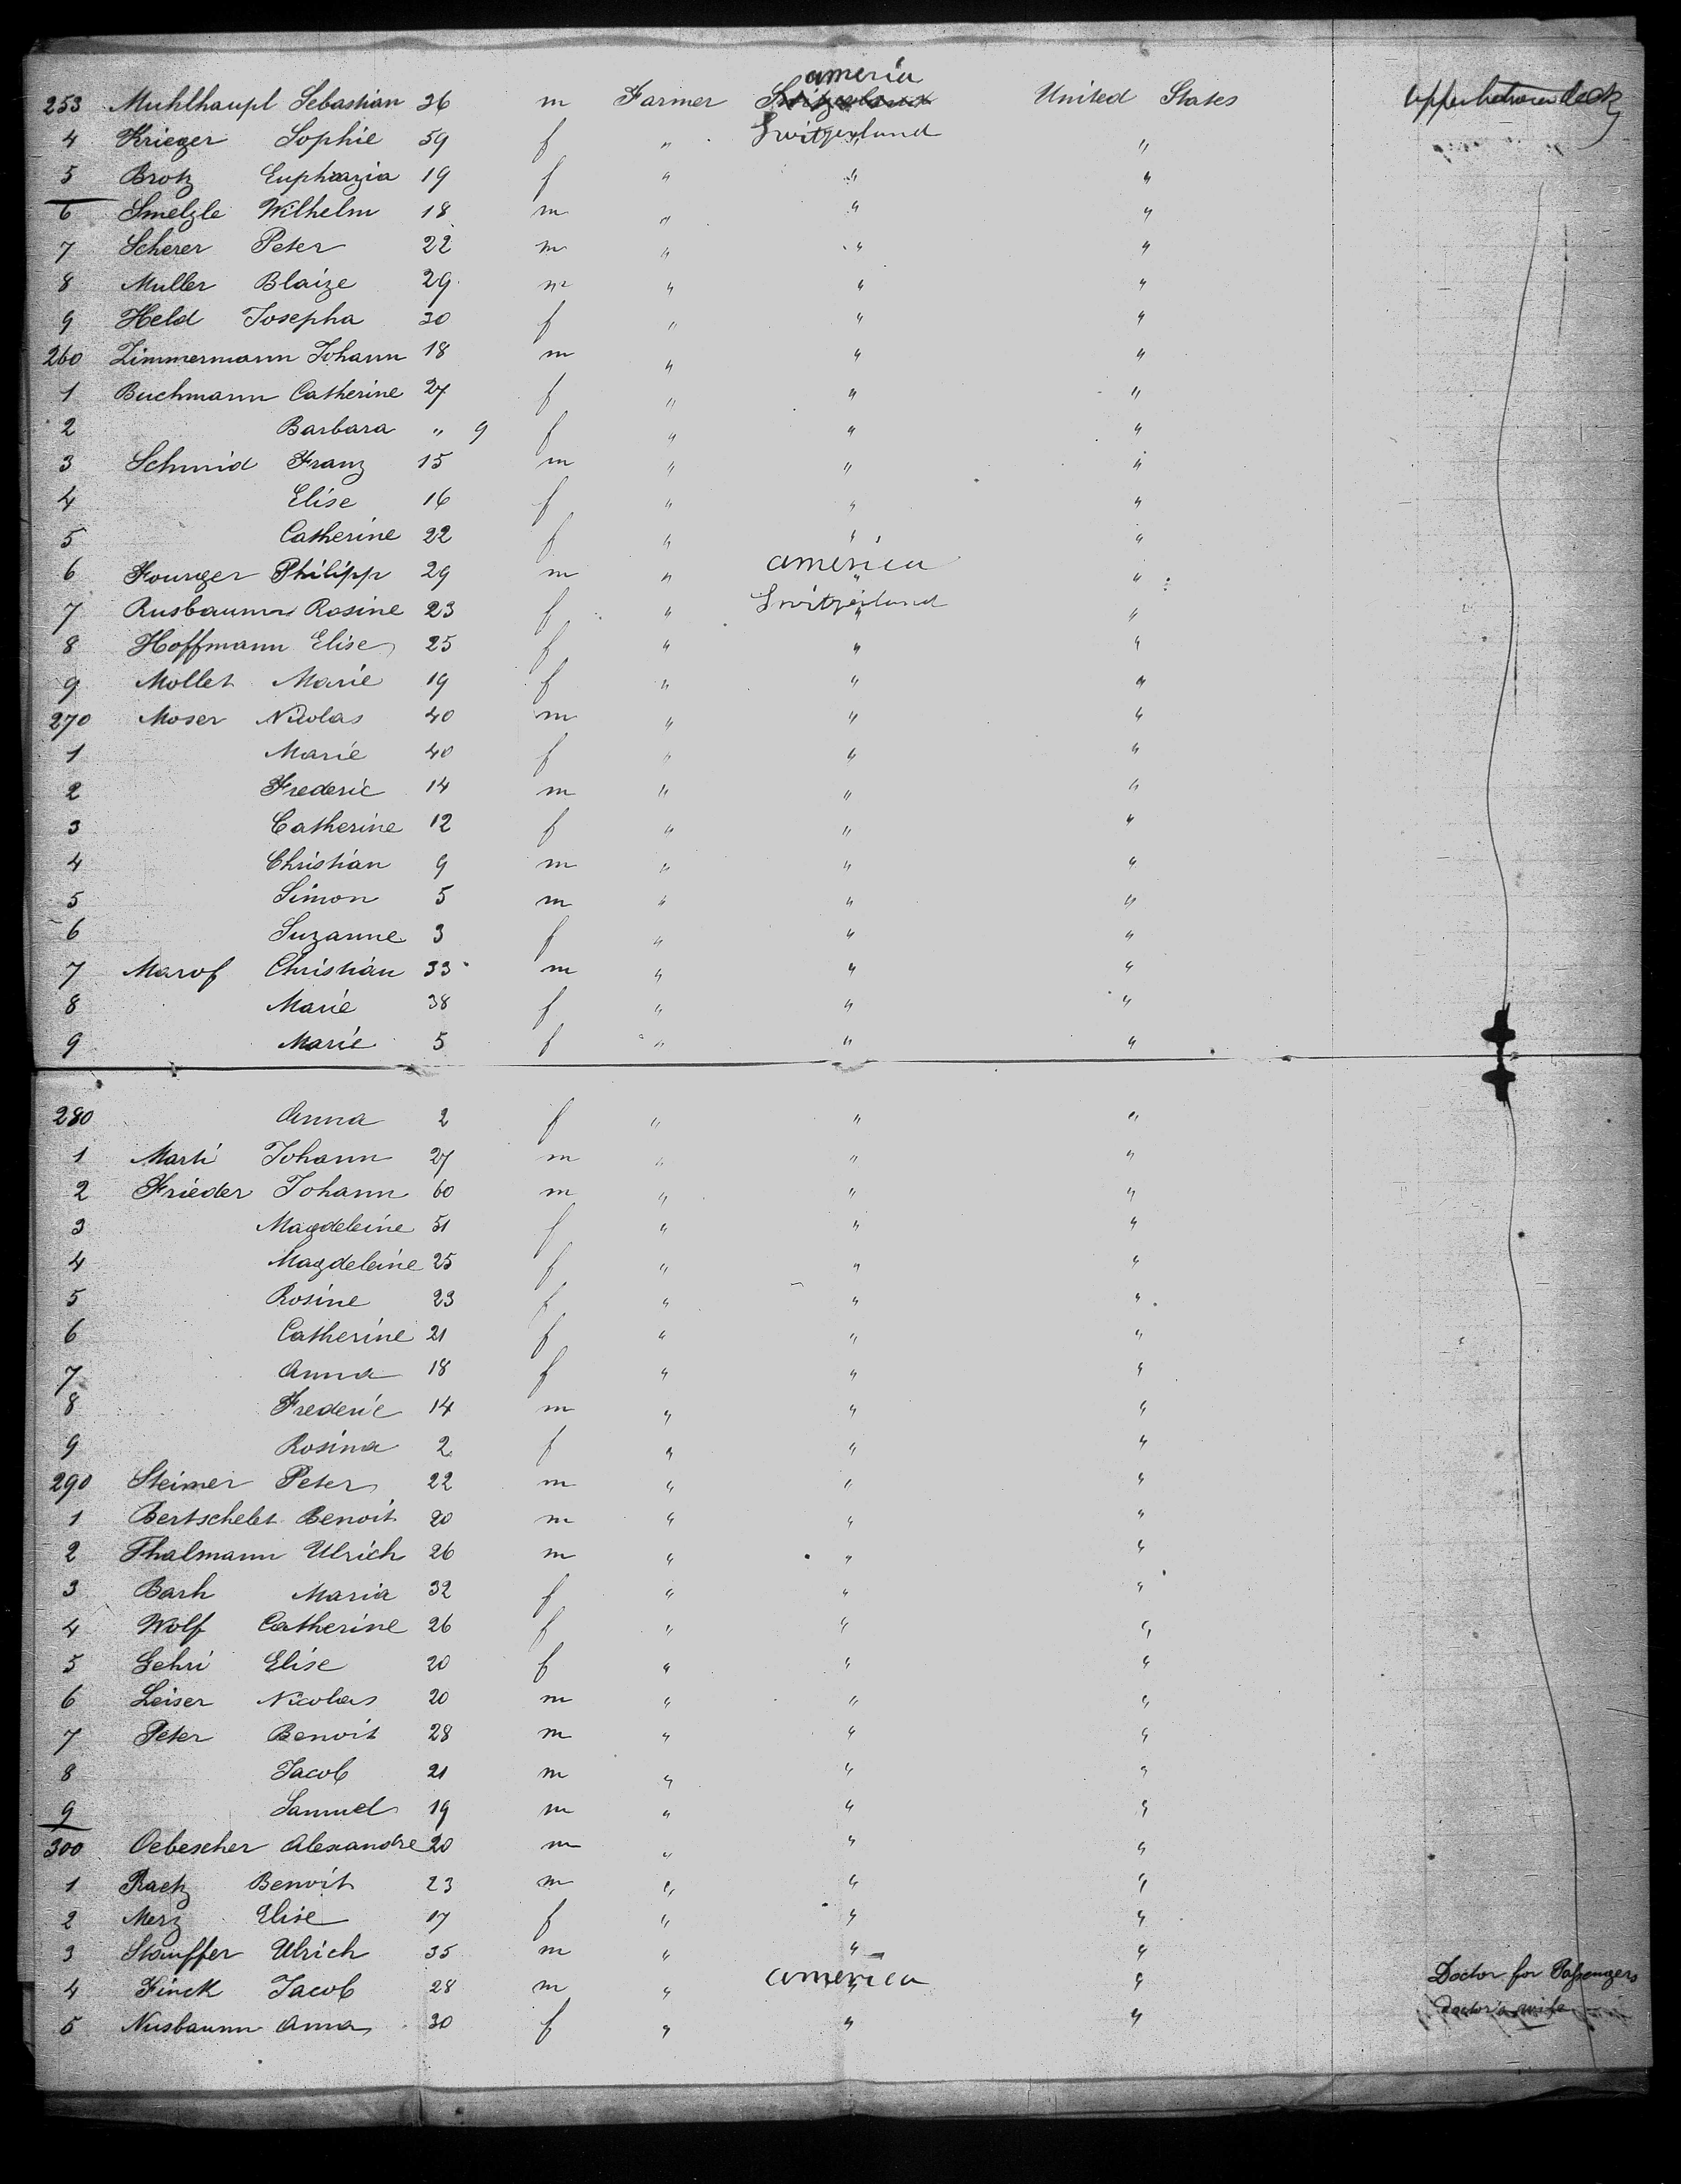 america
253 Muhlhaupl Sebastian 36 m Farmer Switzerland United States Upper between deck
4 Krieger Sophie 59 f " Switzerland "
5 Brotz Euphrazia 19 f " " "
6 Smelzle Wilhelm 18 m " " "
7 Scherer Peter 22 m " " "
8 Muller Blaize 29 m " " "
9 Held Josepha 30 f " " "
260 Zimmermann Johann 18 m " " "
1 Buchmann Catherine 27 f " " "
2 Barbara " 9 f " " "
3 Schmid Franz 15 m " " "
4 Elise 16 f " " "
5 Catherine 22 f " " "
6 Founger Philipp 29 m " america "
7 Rusbaumer Rosine 23 f " Switzerland "
8 Hoffmann Elise 25 f " " "
9 Mollet Marie 19 f " " "
270 Moser Nicolas 40 m " " "
1 Marie 40 f " " "
2 Frederic 14 m " " "
3 Catherine 12 f " " "
4 Christian 9 m " " "
5 Simon 5 m " " "
6 Suzanne 3 f " " "
7 Marof Christian 33 m " " "
8 Marie 38 f " " "
9 Marie 5 f " " "
280 Anna 2 f " " "
1 Marti Johann 27 m " " "
2 Frieder Johann 60 m " " "
3 Magdeleine 51 f " " "
4 Magdeleine 25 f " " "
5 Rosine 23 f " " "
6 Catherine 21 f " " "
7 Anna 18 f " " "
8 Frederic 14 m " " "
9 Rosina 2 f " " "
290 Steimer Peter 22 m " " "
1 Bertschelet Benoit 20 m " " "
2 Thalmann Ulrich 26 m " " "
3 Barh Maria 32 f " " "
4 Wolf Catherine 26 f " " "
5 Gehri Elise 20 f " " "
6 Leiser Nicolas 20 m " " "
7 Peter Benoit 28 m " " "
8 Jacob 21 m " " "
9 Samuel 19 m " " "
300 Oebescher Alexandre 20 m " " "
1 Raetz Benoit 23 m " " "
2 Merz Elise 17 f " " "
3 Stauffer Ulrich 35 m " " "
4 Finck Jacob 28 m " america " Doctor for Passengers
5 Nusbaum Anna 30 f " " " Doctor's wife